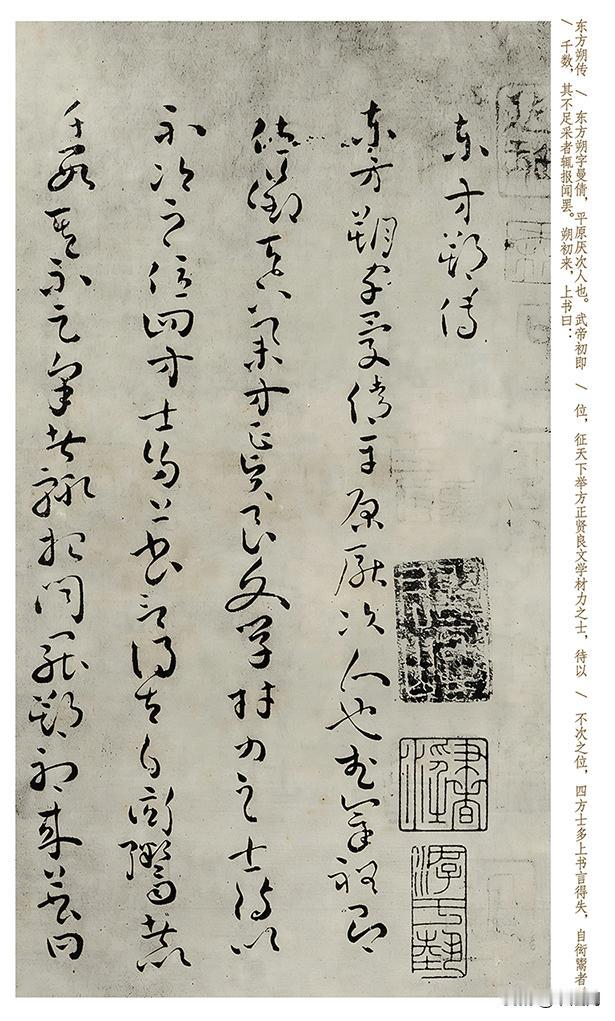 东方朔传 / 东方朔字曼倩，平原厌次人也。武帝初即 / 位，征天下举方正贤良文学材力之士，待以 / 不次之位，四方士多上书言得失，自衒鬻者
/ 千数，其不足采者辄报闻罢。朔初来，上书曰：
東方朔傳
東方朔字曼倩平原厭次人也武帝初即
位徵天下舉方正賢良文学材力之士待以
不次之位四方士多上書言得失自衒鬻者以
千數其不足采者輒報聞罷朔初来上書曰